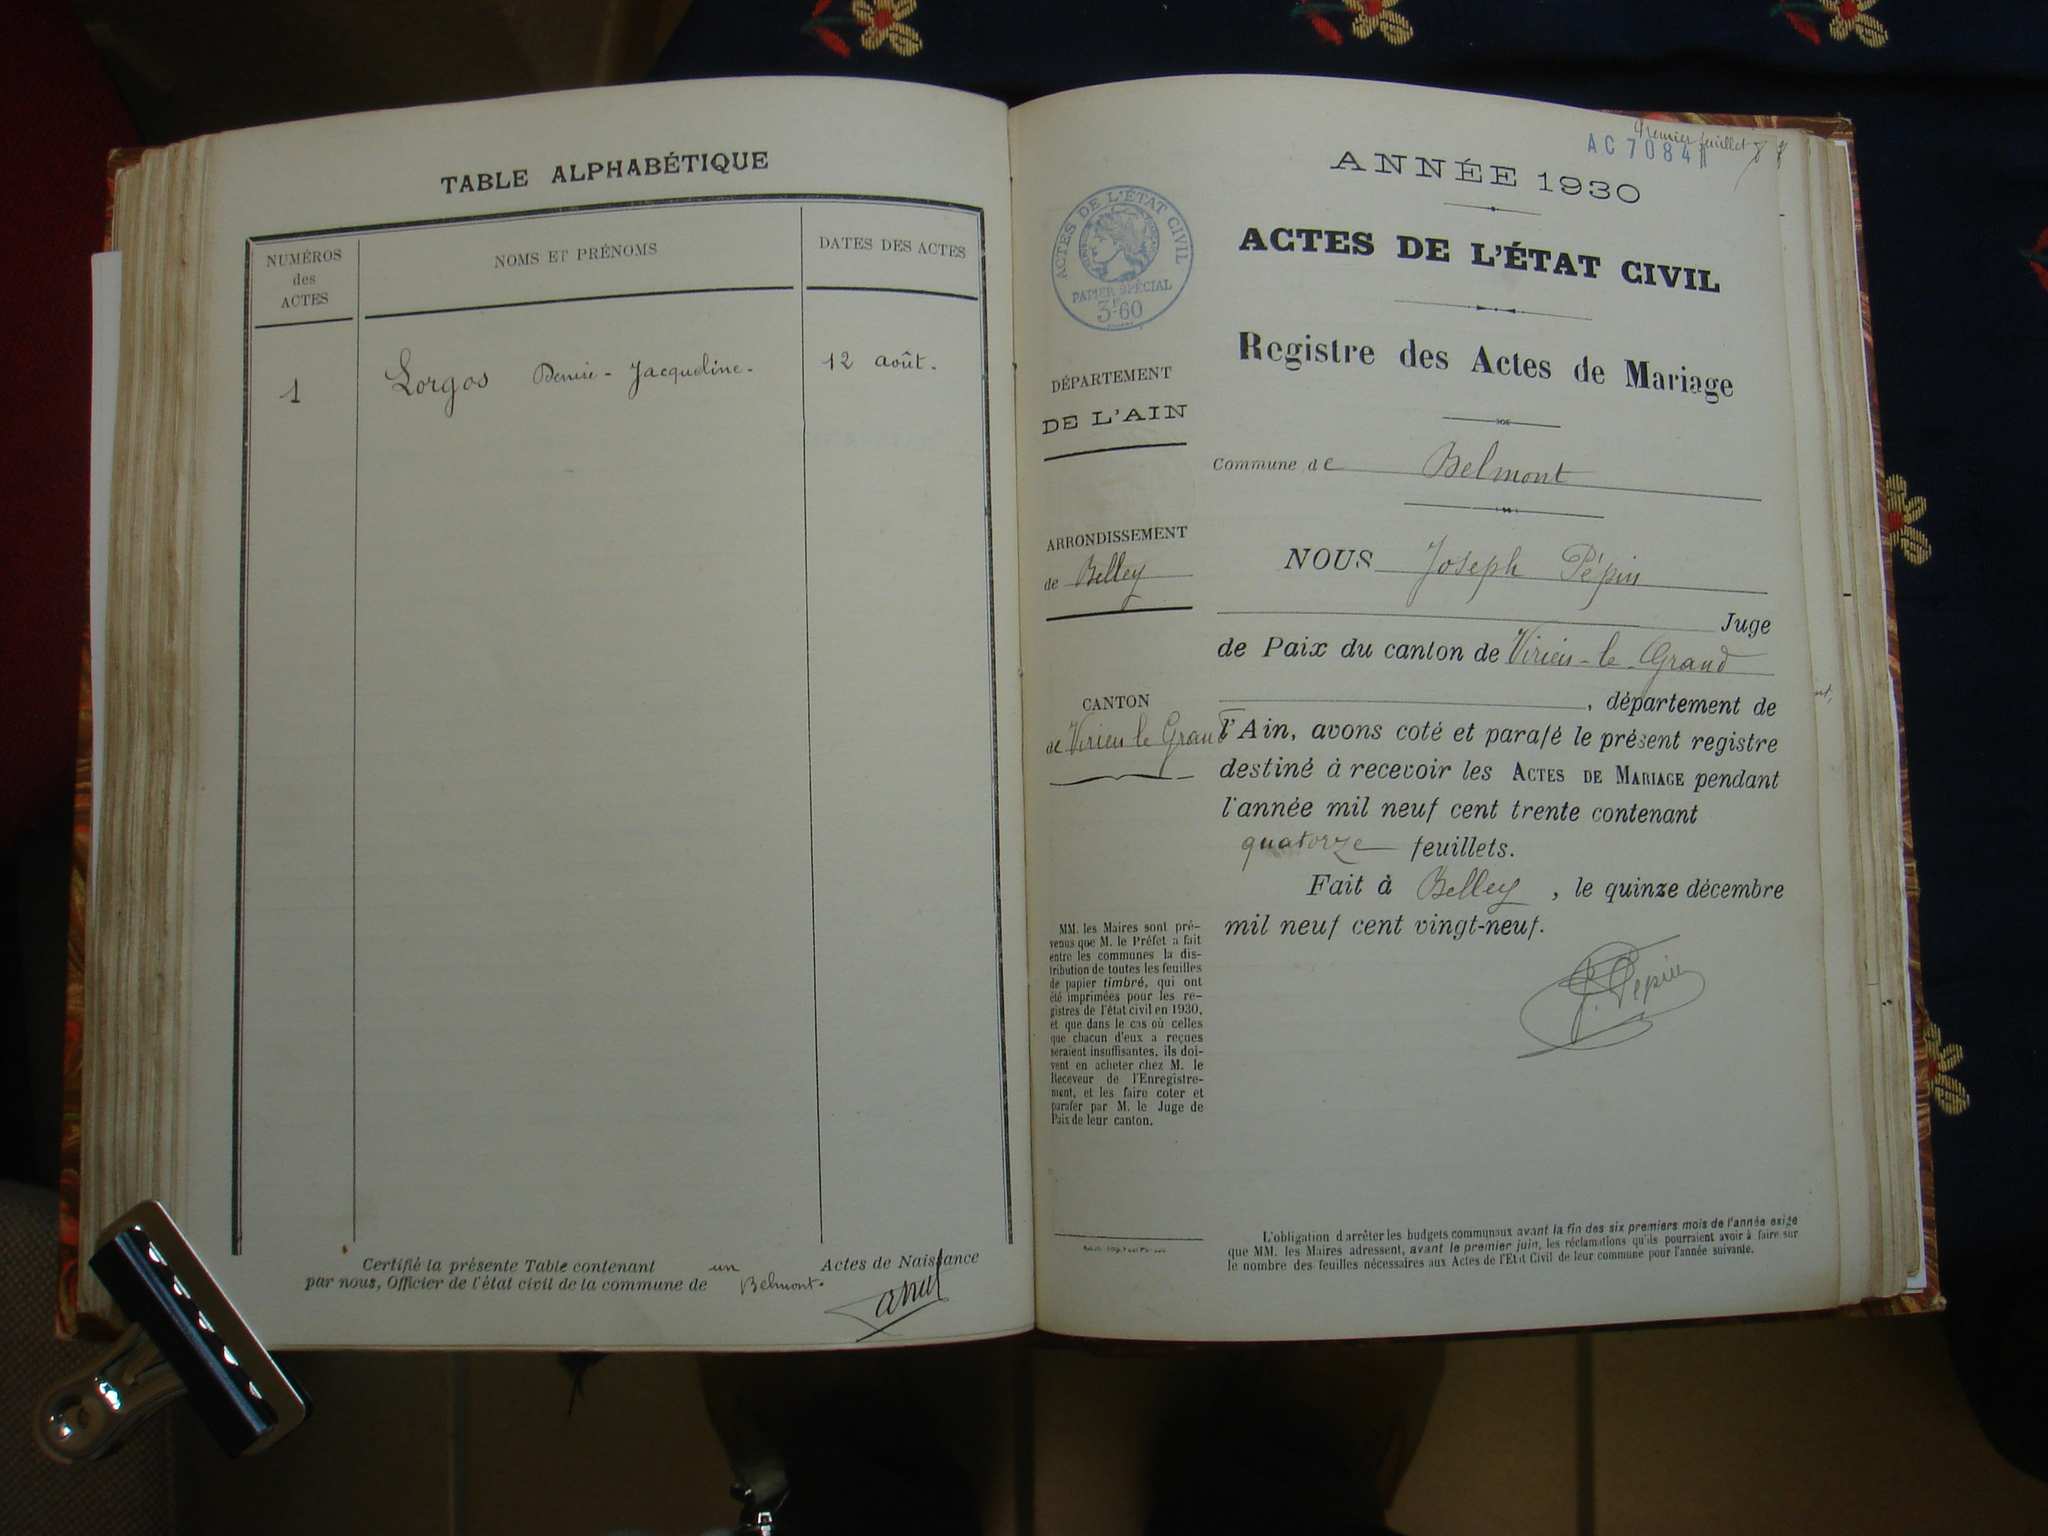 TABLE ALPHABÉTIQUE
NUMÉROS
des
ACTES
NOMS ET PRÉNOMS
DATES DES ACTES
1
Lorgos Denise-Jacqueline.
12 août.
Certifié la présente Table contenant un Actes de Naissance
par nous, Officier de l'état civil de la commune de Belmont.
Premier feuillet
AC 7084
ANNÉE 1930
ACTES DE L'ÉTAT CIVIL
PAPIER SPÉCIAL
3F60
ACTES DE L'ÉTAT CIVIL
Registre des Actes de Mariage
DÉPARTEMENT
DE L'AIN
Commune de Belmont
ARRONDISSEMENT
de Belley
CANTON
de Virieu le Grand
NOUS Joseph Pépin
Juge
de Paix du canton de Virieu-le-Grand
, département de
l'Ain, avons coté et parafé le présent registre
destiné à recevoir les ACTES DE MARIAGE pendant
l'année mil neuf cent trente contenant
quatorze feuillets.
Fait à Belley, le quinze décembre
mil neuf cent vingt-neuf.
J. Pepin
MM. les Maires sont pré-
venus que M. le Préfet a fait
entre les communes la dis-
tribution de toutes les feuilles
de papier timbré, qui ont
été imprimées pour les re-
gistres de l'état civil en 1930,
et que dans le cas où celles
que chacun d'eux a reçues
seraient insuffisantes, ils doi-
vent en acheter chez M. le
Receveur de l'Enregistre-
ment, et les faire coter et
parafer par M. le Juge de
Paix de leur canton.
L'obligation d'arrêter les budgets communaux avant la fin des six premiers mois de l'année exige
que MM. les Maires adressent, avant le premier juin, les réclamations qu'ils pourraient avoir à faire sur
le nombre des feuilles nécessaires aux Actes de l'Etat Civil de leur commune pour l'année suivante.